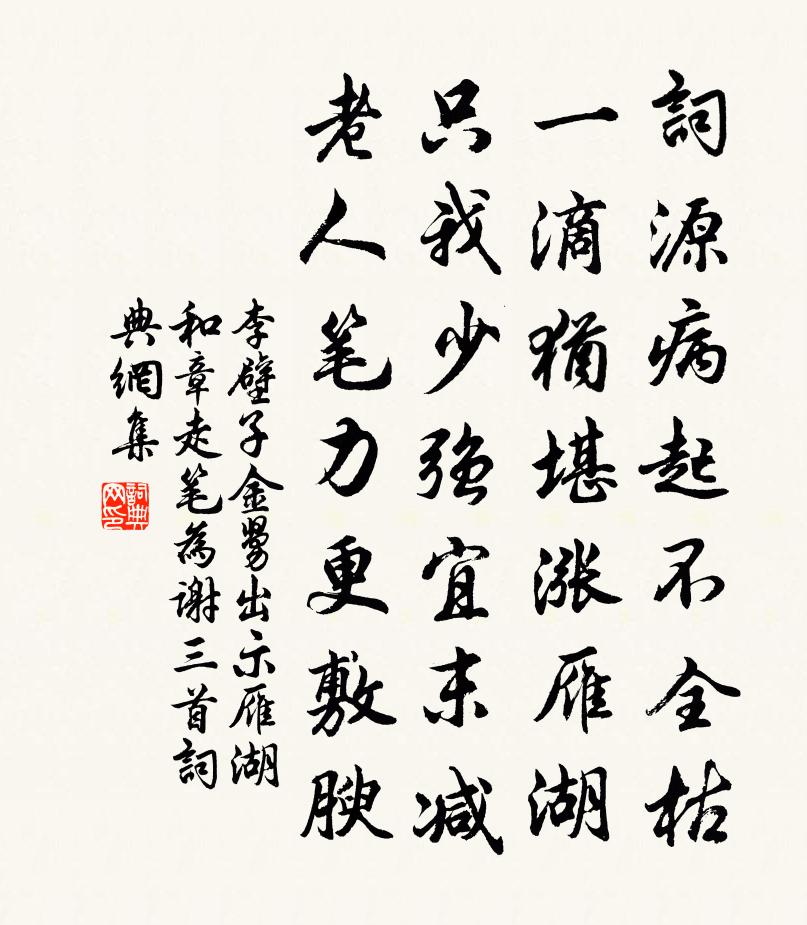 詞源病起不全枯
一滴猶堪漲雁湖
只我少強宜未减
老人笔力更敷腴
李壁子金㽦出示雁湖
和章走笔為谢三首詞
典網集
詞典网印